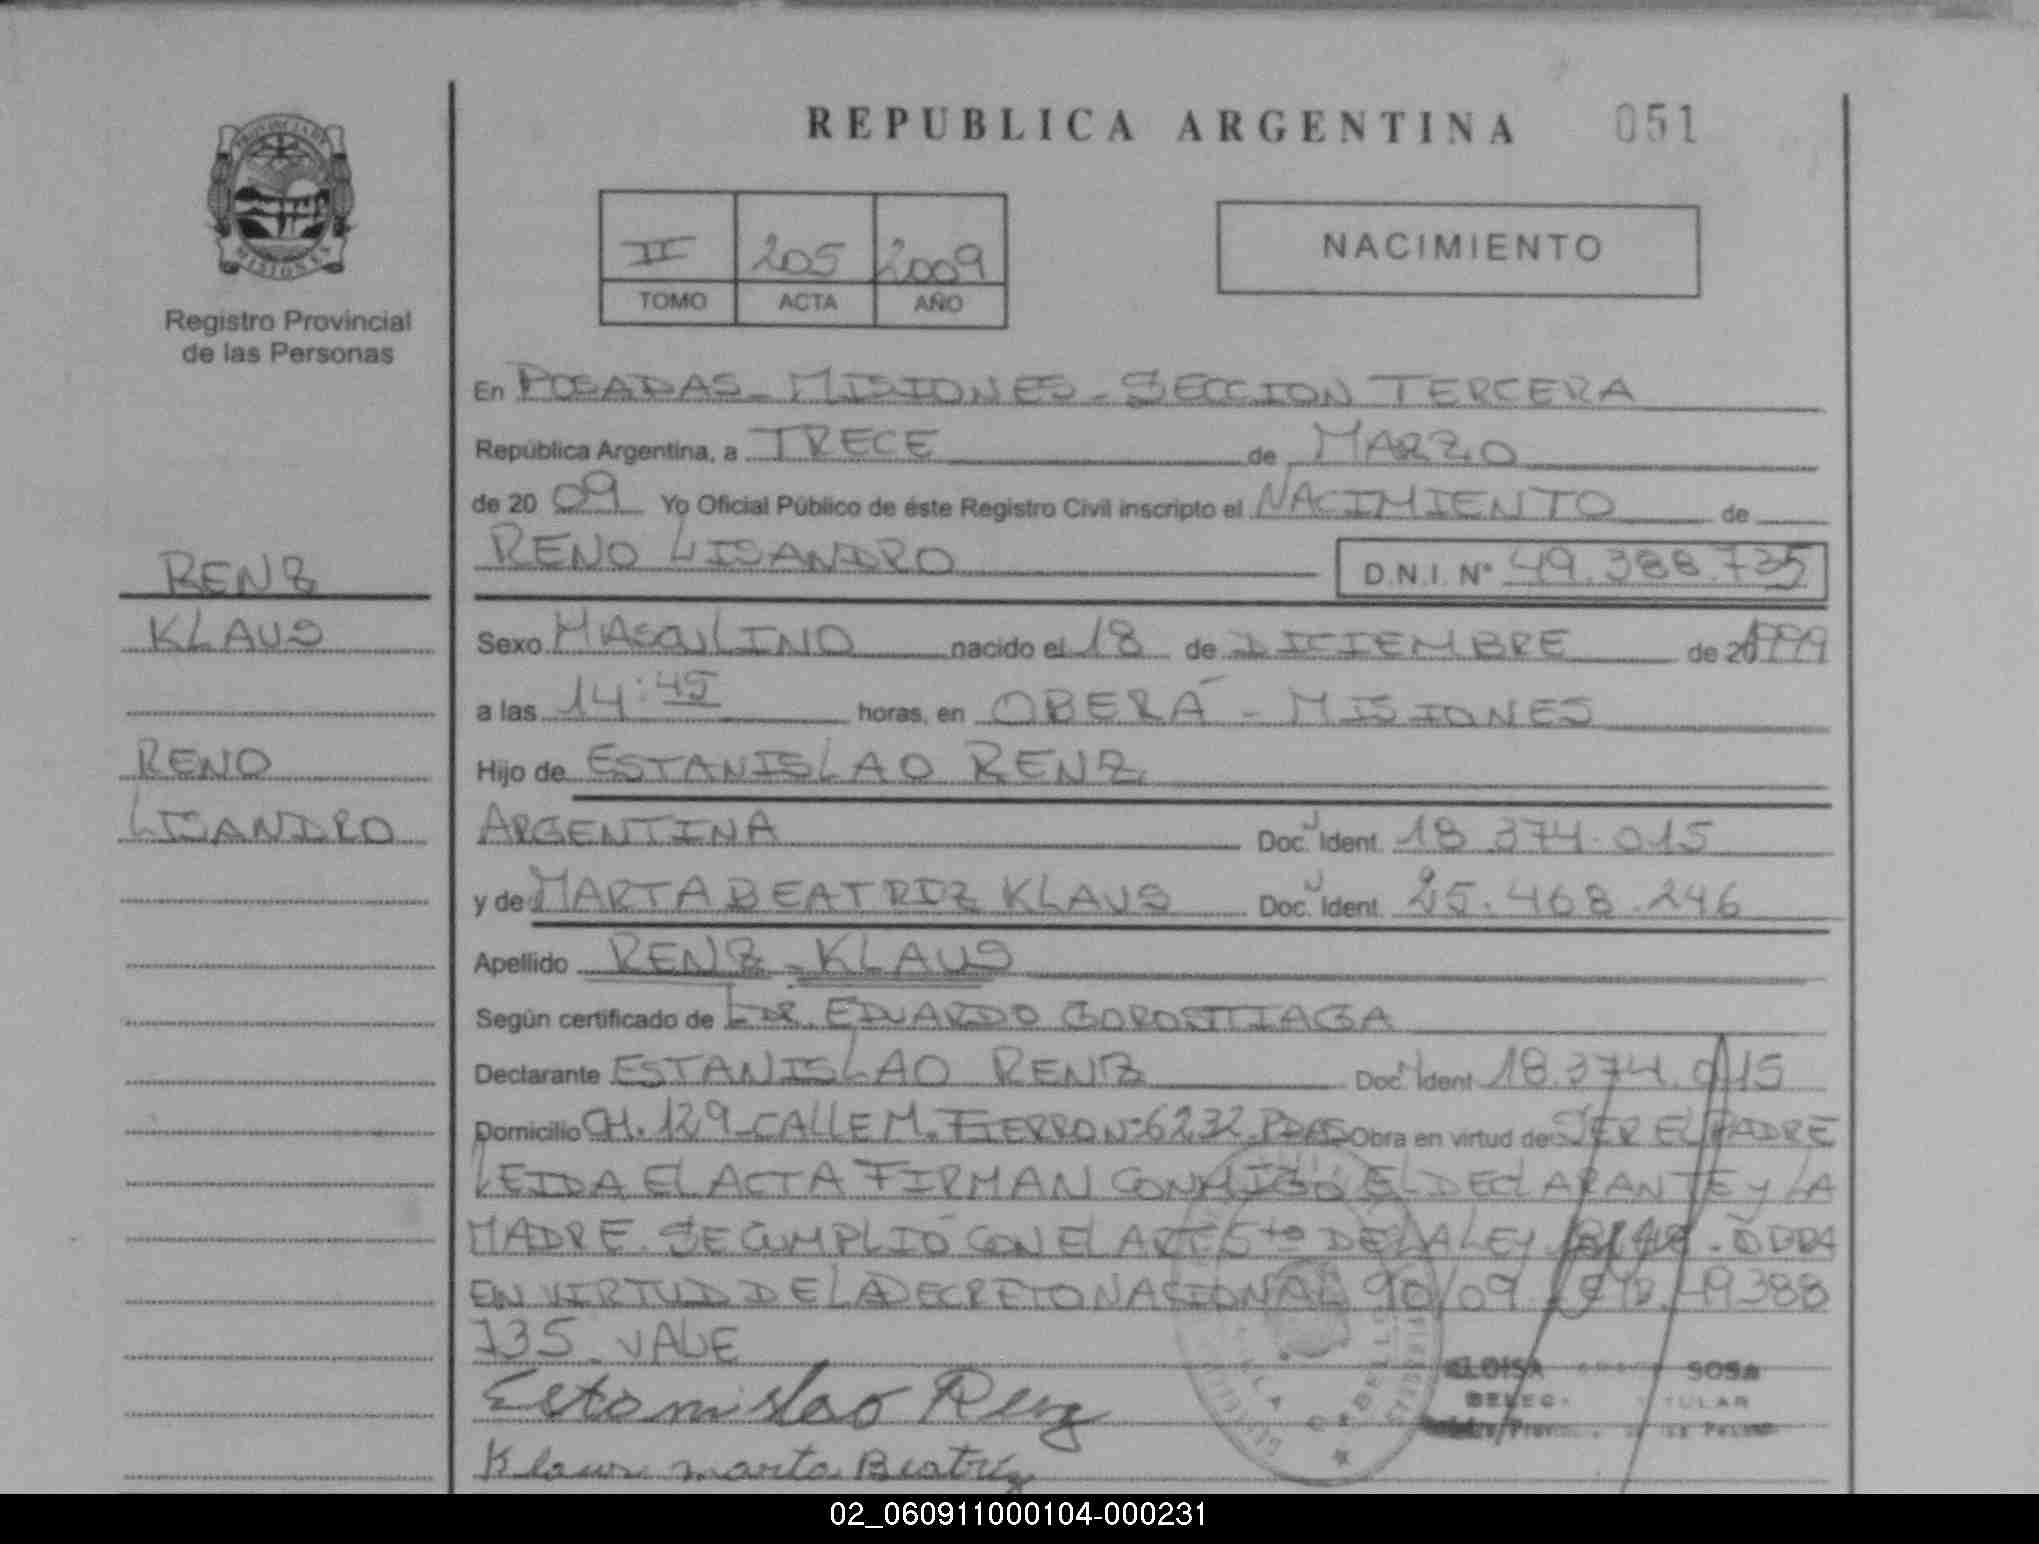 REPUBLICA ARGENTINA 051
PROVINCIA DE
MISIONES
Registro Provincial
de las Personas
II 205 2009
TOMO ACTA AÑO
NACIMIENTO
En POSADAS - MISIONES - SECCION TERCERA
República Argentina, a TRECE de MARZO
de 20 09 Yo Oficial Público de éste Registro Civil inscripto el NACIMIENTO de
RENO LISANDRO D.N.I. Nº 49.388.735
RENZ
KLAUS
RENO
LISANDRO
Sexo MASCULINO nacido el 18 de DICIEMBRE de 1999
a las 14:45 horas, en OBERÁ - MISIONES
Hijo de ESTANISLAO RENZ
ARGENTINA Doc. Ident. 18.374.015
y de MARTA BEATRIZ KLAUS Doc. Ident. 25.468.246
Apellido RENZ - KLAUS
Según certificado de DR. EDUARDO GOROSTIAGA
Declarante ESTANISLAO RENZ Doc. Ident. 18.374.015
Domicilio CH. 129 - CALLE M. FIERRO Nº 6232 PDAS Obra en virtud de SER EL PADRE
LEIDA EL ACTA FIRMAN CONMIGO EL DECLARANTE Y LA
MADRE. SE CUMPLIÓ CON EL ART 5to DE LA LEY
EN VIRTUD DE LA DECRETO NACIONAL 90/09. 49388
735 - VALE
Estanislao Renz
Klaus Marta Beatriz
ELOISA SOSA
02_060911000104-000231